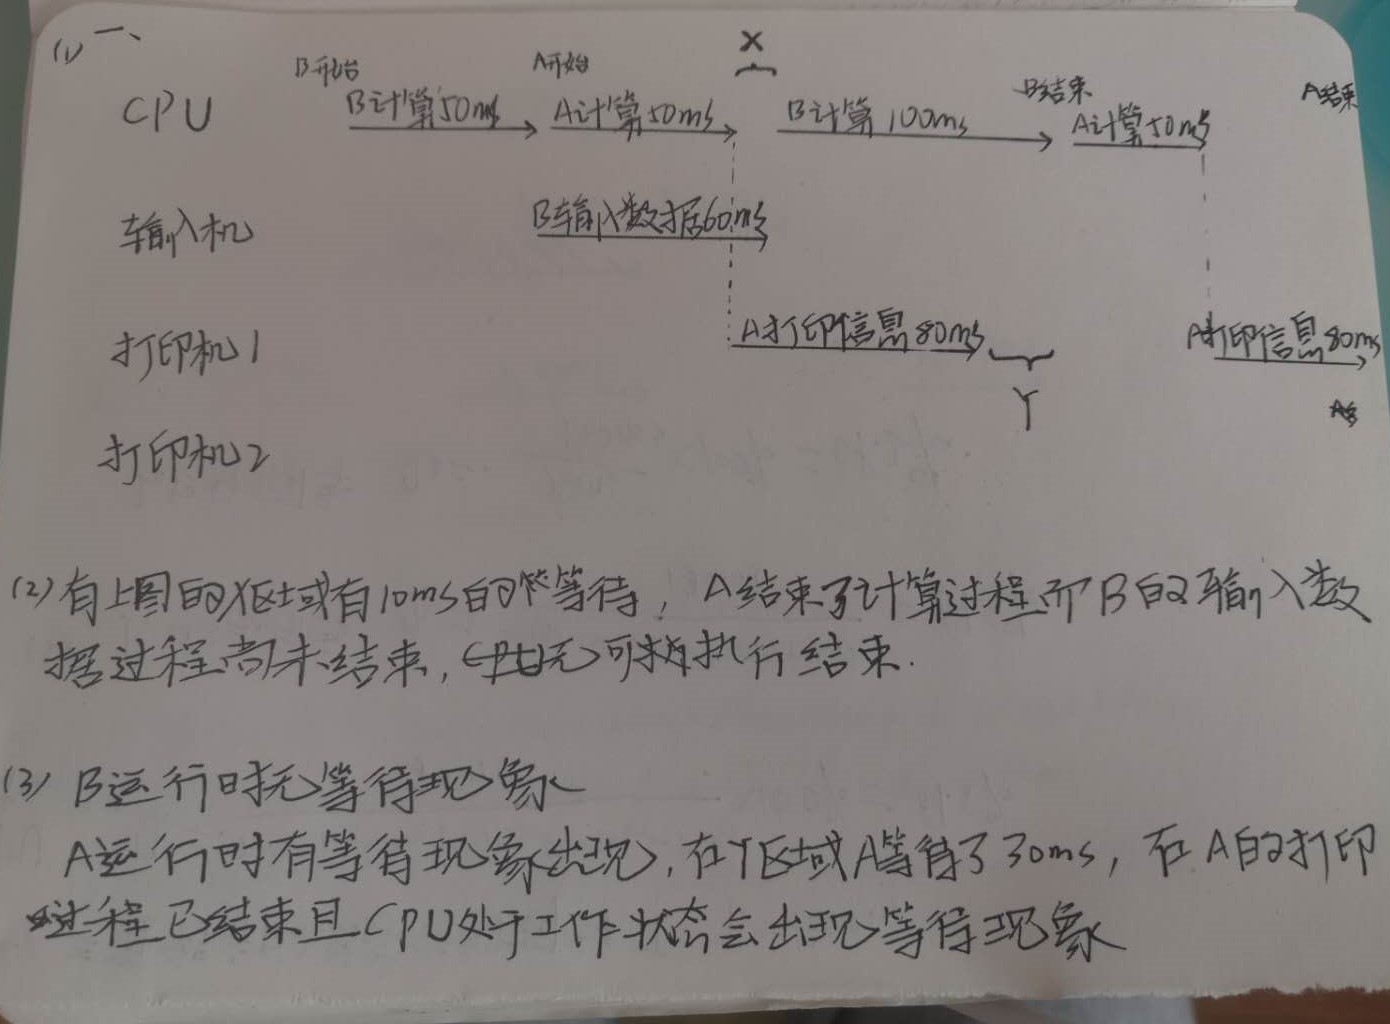 (1) 一、
X
B开始 A开始 B结束 A结束
CPU B计算50ms A计算50ms B计算100ms A计算50ms
输入机 B输入数据60ms
打印机1 A打印信息80ms A打印信息80ms
Y
打印机2
(2) 有上图的X区域有10ms的 等待，A结束了计算过程而B的输入数
据过程尚未结束，CPU无可执行结束.
(3) B运行时无等待现象
A运行时有等待现象出现，在Y区域A等待了30ms，在A的打印
过程已结束且CPU处于工作状态会出现等待现象